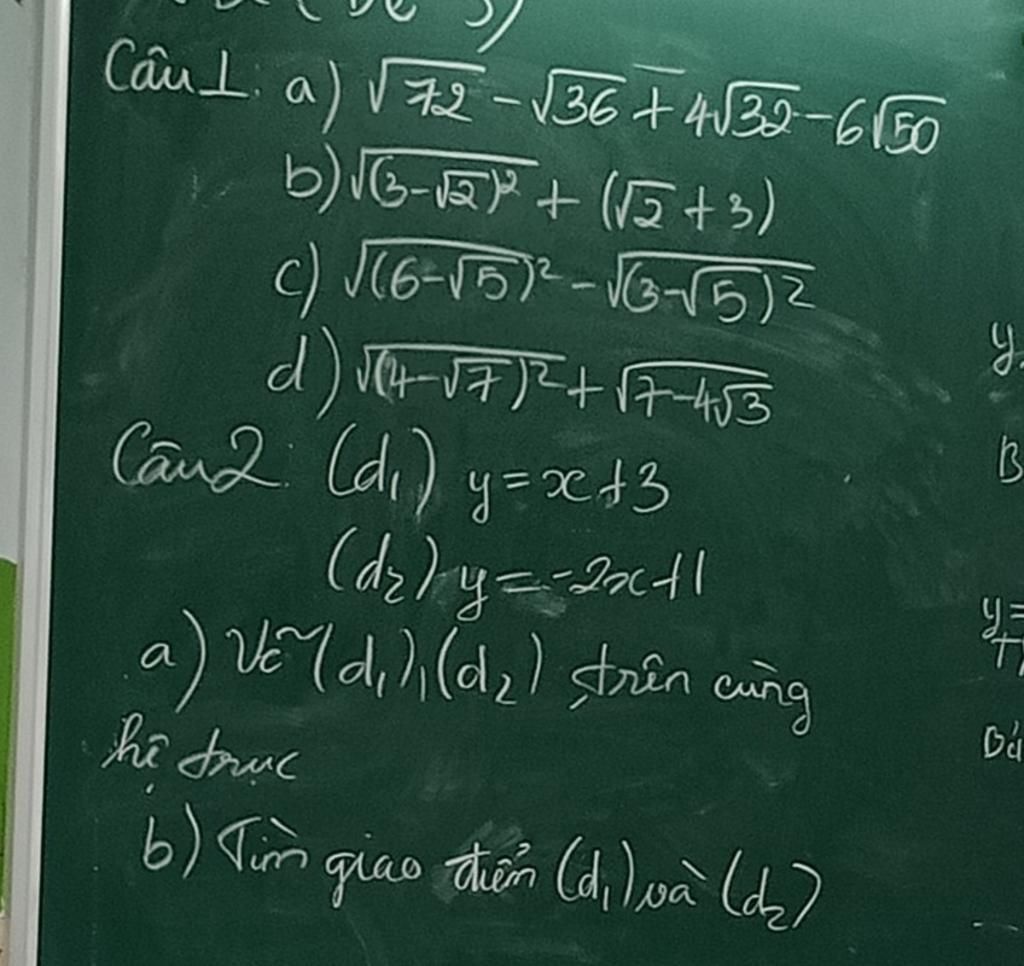 Câu 1. a) √72 - √36 + 4√32 - 6√50
b) √(3-√2)² + (√2 + 3)
c) √(6-√5)² - √(3-√5)²
d) √(4-√7)² + √7-4√3
Câu 2: (d₁) y = x + 3
(d₂) y = -2x + 1
a) Vẽ (d₁), (d₂) trên cùng
hệ trục
b) Tìm giao điểm (d₁) và (d₂)
y
B
y=